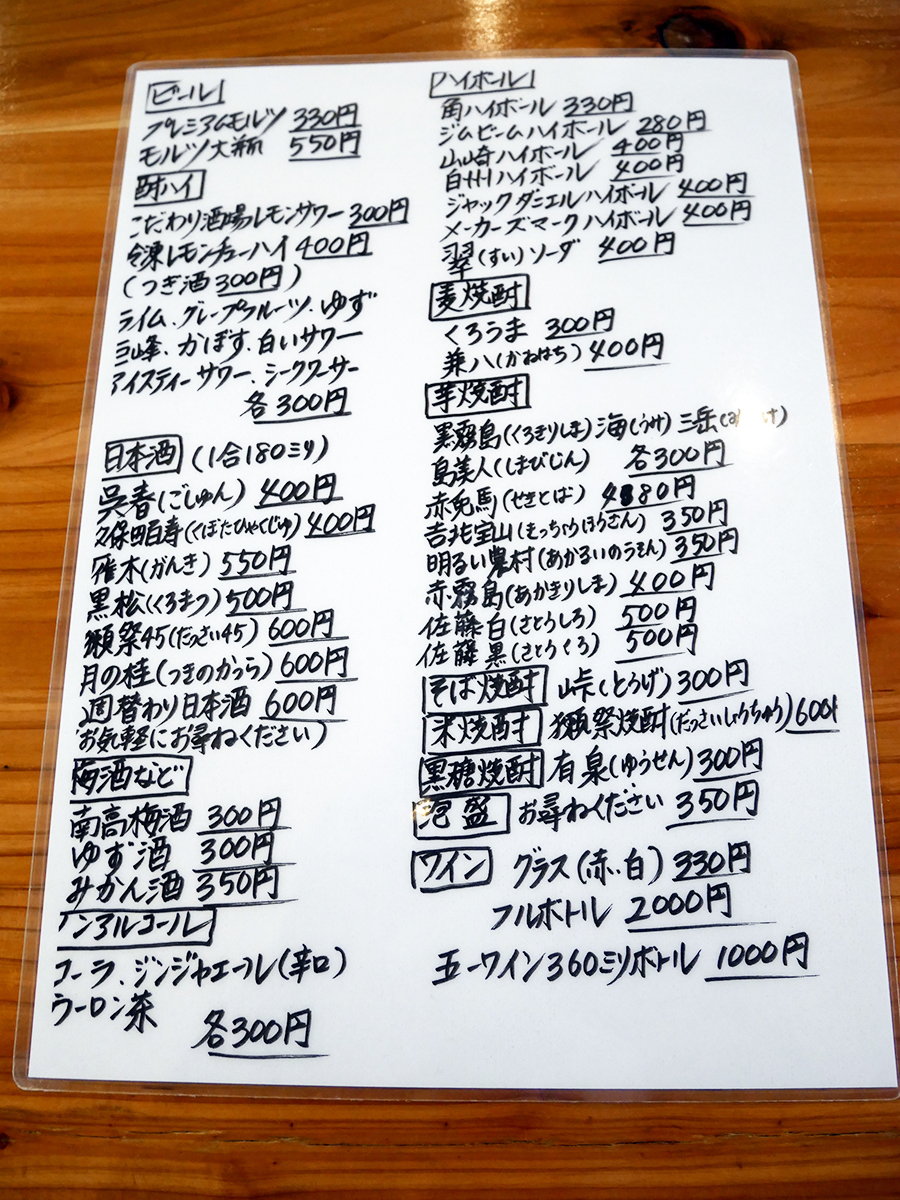 ビール
プレミアムモルツ 330円
モルツ大瓶 550円
酎ハイ
こだわり酒場レモンサワー 300円
冷凍レモンチューハイ 400円
(つぎ酒300円)
ライム、グレープフルーツ、ゆず
巨峰、かぼす、白いサワー
アイスティーサワー、シークワーサー
各300円
日本酒 (1合180ミリ)
呉春(ごしゅん) 400円
久保田百寿(くぼたひゃくじゅ) 400円
雁木(がんき) 550円
黒松(くろまつ) 500円
獺祭45(だっさい45) 600円
月の桂(つきのかつら) 600円
週替わり日本酒 600円
(お気軽にお尋ねください)
梅酒など
南高梅酒 300円
ゆず酒 300円
みかん酒 350円
ノンアルコール
コーラ、ジンジャエール(辛口)
ウーロン茶
各300円
ハイボール
角ハイボール 330円
ジムビームハイボール 280円
山崎ハイボール 400円
白州ハイボール 400円
ジャックダニエルハイボール 400円
メーカーズマークハイボール 400円
翠(すい)ソーダ 400円
麦焼酎
くろうま 300円
兼八(かねはち) 400円
芋焼酎
黒霧島(くろきりしま) 海(うみ) 三岳
島美人(しまびじん) 各300円
赤兎馬(せきとば) 480円
吉兆宝山(きっちょうほうざん) 350円
明るい農村(あかるいのうそん) 350円
赤霧島(あかきりしま) 400円
佐藤白(さとうしろ) 500円
佐藤黒(さとうくろ) 500円
そば焼酎 峠(とうげ) 300円
米焼酎 獺祭焼酎(だっさいしょうちゅう) 600円
黒糖焼酎 有泉(ゆうせん) 300円
泡盛 お尋ねください 350円
ワイン グラス(赤、白) 330円
フルボトル 2000円
五一ワイン360ミリボトル 1000円